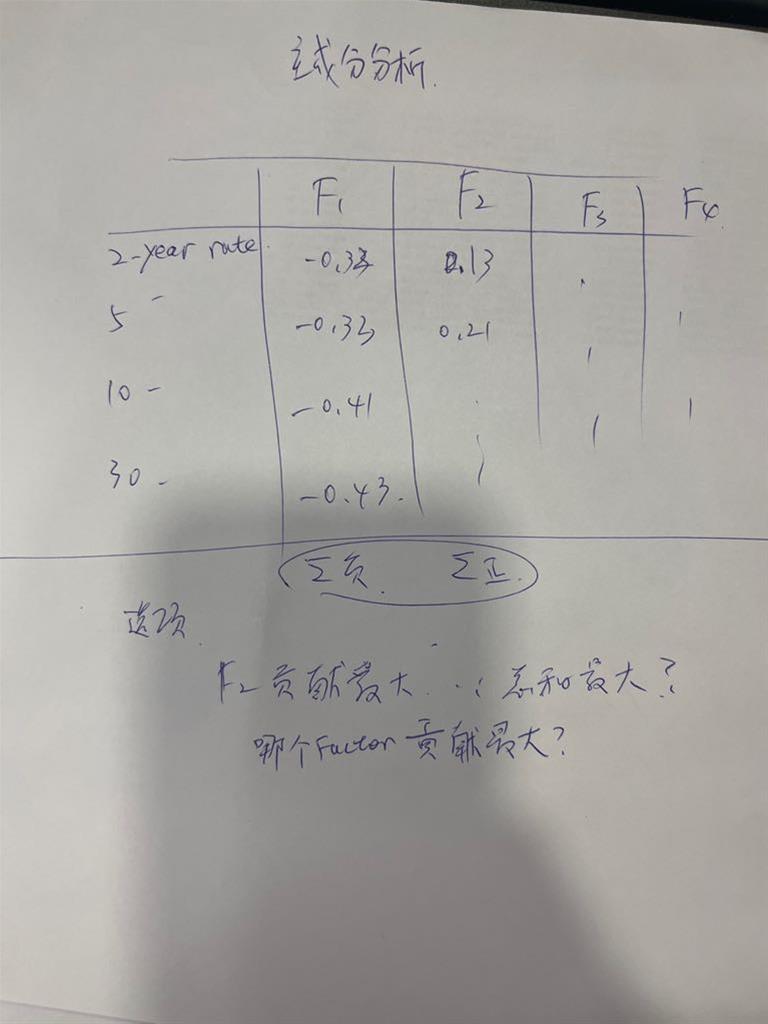 主成分分析.
F1 F2 F3 F4
2-year rate. -0.33 0.13
5 - -0.33 0.21
10 - -0.41
30 - -0.43.
Σ负. Σ正.
选项.
F2 贡献最大 ∵ 总和最大?
哪个Factor 贡献最大?